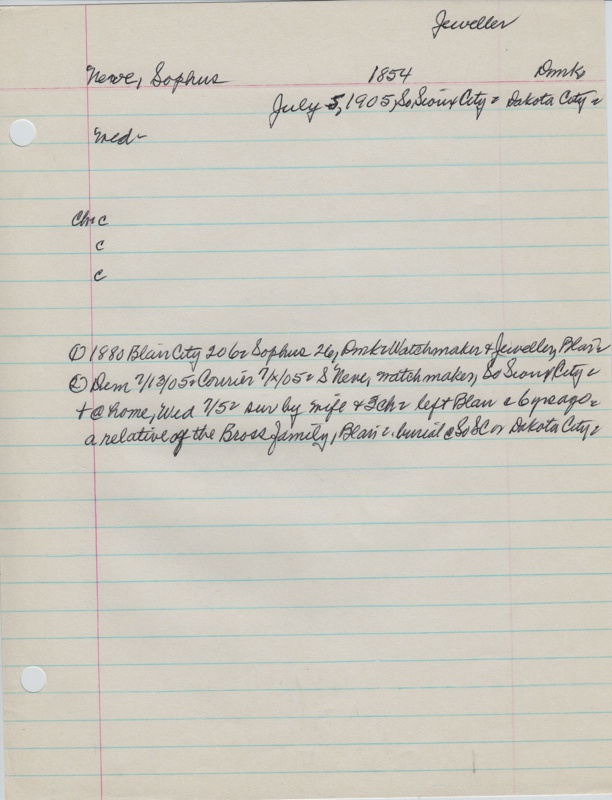 Jeweller
Neve, Sophus 1854 Dmk
July 5, 1905, So Sioux City = Dakota City =
med -
Ch = c
c
c
① 1880 Blair City 206 = Sophus 26, Dmk = Watchmaker & Jeweller, Blair =
② Dem 7/13/05 = Courier 7/x/05 = S Neve, watchmaker, So Sioux City =
+ @ home, Wed 7/5 = sur by wife + 3 ch = left Blair c 6 yrs ago =
a relative of the Bross family, Blair = burial @ So SC or Dakota City =